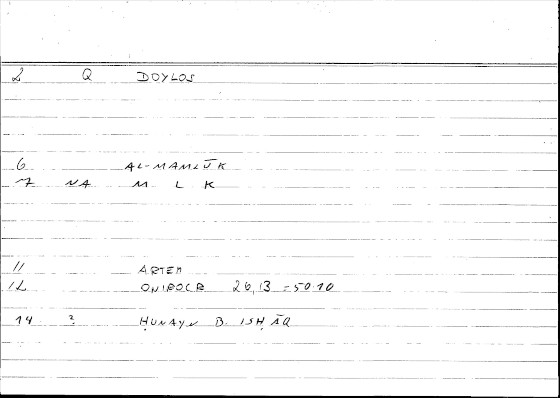 2 Q DOYLOS
6 AL-MAMLŪK
7 NA M L K
11 ARTEM
12 ONIROCR 26,13 = 50.10
14 ? ḤUNAYN B. ISḤĀQ